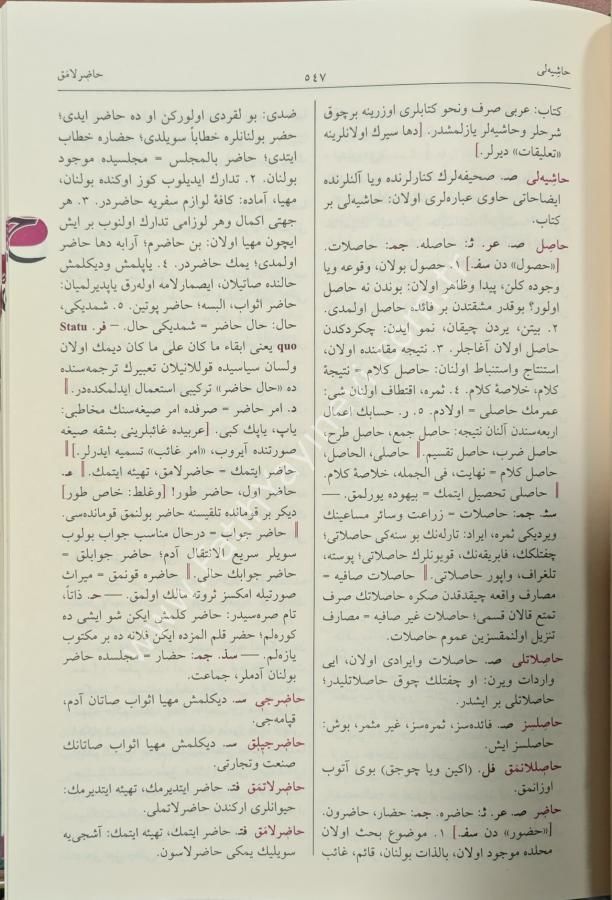 حاشیه‌لی
٥٤٧
حاضرلامق
كتاب: عربی صرف ونحو كتابلری اوزرینه برچوق
شرحلر وحاشیه‌لر یازلمشدر. [دها سیرك اولانلرینه
«تعلیقات» دیرلر.]
حاشیه‌لی صـ. صحیفه‌لرك كنارلرنده ویا آلتلرنده
ایضاحاتی حاوی عباره‌لری اولان: حاشیه‌لی بر
كتاب.
حاصل صـ. عر. ثـ: حاصله. جمـ: حاصلات.
[«حصول» دن سفـ.] ١. حصول بولان، وقوعه ویا
وجوده كلن، پیدا وظاهر اولان: بوندن نه حاصل
اولور؟ بوقدر مشقتدن بر فائده حاصل اولمدی.
٢. بیتن، یردن چیقان، نمو ایدن: چكردكدن
حاصل اولان آغاجلر. ٣. نتیجه مقامنده اولان،
استنتاج واستنباط اولنان: حاصل كلام = نتیجهٔ
كلام، خلاصهٔ كلام. ٤. ثمره، اقتطاف اولنان شی:
عمرمك حاصلی = اولادم. ٥. ر. حسابك اعمال
اربعه‌سندن آلنان نتیجه: حاصل جمع، حاصل طرح،
حاصل ضرب، حاصل تقسیم. ‖ حاصلی، الحاصل،
حاصل كلام = نهایت، فی الجمله، خلاصهٔ كلام.
‖ حاصلی تحصیل ایتمك = بیهوده یورلمق. —
سڅ جمـ: حاصلات = زراعت وسائر مساعینك
ویردیكی ثمره، ایراد: تارله‌نك بو سنه‌كی حاصلاتی؛
چفتلكك، فابریقه‌نك، قویونلرك حاصلاتی؛ پوسته،
تلغراف، واپور حاصلاتی. ‖ حاصلات صافیه =
مصارف واقعه چیقدقدن صكره حاصلاتك صرف
تمتع قالان قسمی؛ حاصلات غیر صافیه = مصارف
تنزیل اولنمقسزین عموم حاصلات.
حاصلاتلی صـ. حاصلات وایرادی اولان، ایی
واردات ویرن: او چفتلك چوق حاصلاتلیدر؛
حاصلاتلی بر ایشدر.
حاصلسز صـ. فائده‌سز، ثمره‌سز، غیر مثمر، بوش:
حاصلسز ایش.
حاصللانمق فل. (اكین ویا چوجق) بوی آتوب
اوزانمق.
حاضر صـ. عر. ثـ: حاضره. جمـ: حضار، حاضرون.
[«حضور» دن سفـ.] ١. موضوع بحث اولان
محلده موجود اولان، بالذات بولنان، قائم، غائب
ضدی: بو لقردی اولوركن او ده حاضر ایدی؛
حضر بولنانلره خطاباً سویلدی؛ حضاره خطاب
ایتدی؛ حاضر بالمجلس = مجلسیده موجود
بولنان. ٢. تدارك ایدیلوب كوز اوكنده بولنان،
مهیا، آماده: كافهٔ لوازم سفریه حاضردر. ٣. هر
جهتی اكمال وهر لوزامی تدارك اولنوب بر ایش
ایچون مهیا اولان: بن حاضرم؛ آرابه دها حاضر
اولمدی؛ یمك حاضردر. ٤. یاپلمش ودیكلمش
حالنده صاتیلان، ایصمارلامه اوله‌رق یاپدیرلمیان:
حاضر اثواب، البسه؛ حاضر پوتین. ٥. شمدیكی،
حال: حال حاضر = شمدیكی حال. — فر. Statu
quo یعنی ابقاء ما كان علی ما كان دیمك اولان
ولسان سیاسیده قوللانیلان تعبیرك ترجمه‌سنده
ده «حال حاضر» تركیبی استعمال ایدلمكده‌در. ‖
د. امر حاضر = صرفده امر صیغه‌سنك مخاطبی:
یاپ، یاپك كبی. [عربیده غائبلرینی بشقه صیغه
صورتنده آیروب، «امر غائب» تسمیه ایدرلر.] ‖
حاضر ایتمك = حاضرلامق، تهیئه ایتمك. ‖ عـ.
حاضر اول، حاضر طور! [وغلط: خاص طور]
دیكر بر قوماندہ تلقینسنه حاضر بولنمق قوماندہ‌سی.
‖ حاضر جواب = درحال مناسب جواب بولوب
سویلر سریع الانتقال آدم؛ حاضر جوابلق =
حاضر جوابك حالی. ‖ حاضره قونمق = میراث
صورتیله امكسز ثروته مالك اولمق. — حـ. ذاتاً،
تام صره‌سیدر: حاضر كلمش ایكن شو ایشی ده
كوره‌لم؛ حضر قلم المزده ایكن فلانه ده بر مكتوب
یازه‌لم. — سذ. جمـ: حضار = مجلسده حاضر
بولنان آدملر، جماعت.
حاضرجی سـ. دیكلمش مهیا اثواب صاتان آدم،
قپامه‌جی.
حاضرجیلق سـ. دیكلمش مهیا اثواب صاتانك
صنعت وتجارتی.
حاضرلاتمق فتـ. حاضر ایتدیرمك، تهیئه ایتدیرمك:
حیوانلری اركندن حاضرلاتملی.
حاضرلامق فتـ. حاضر ایتمك، تهیئه ایتمك: آشجی‌یه
سویلیك یمكی حاضرلاسون.
ح